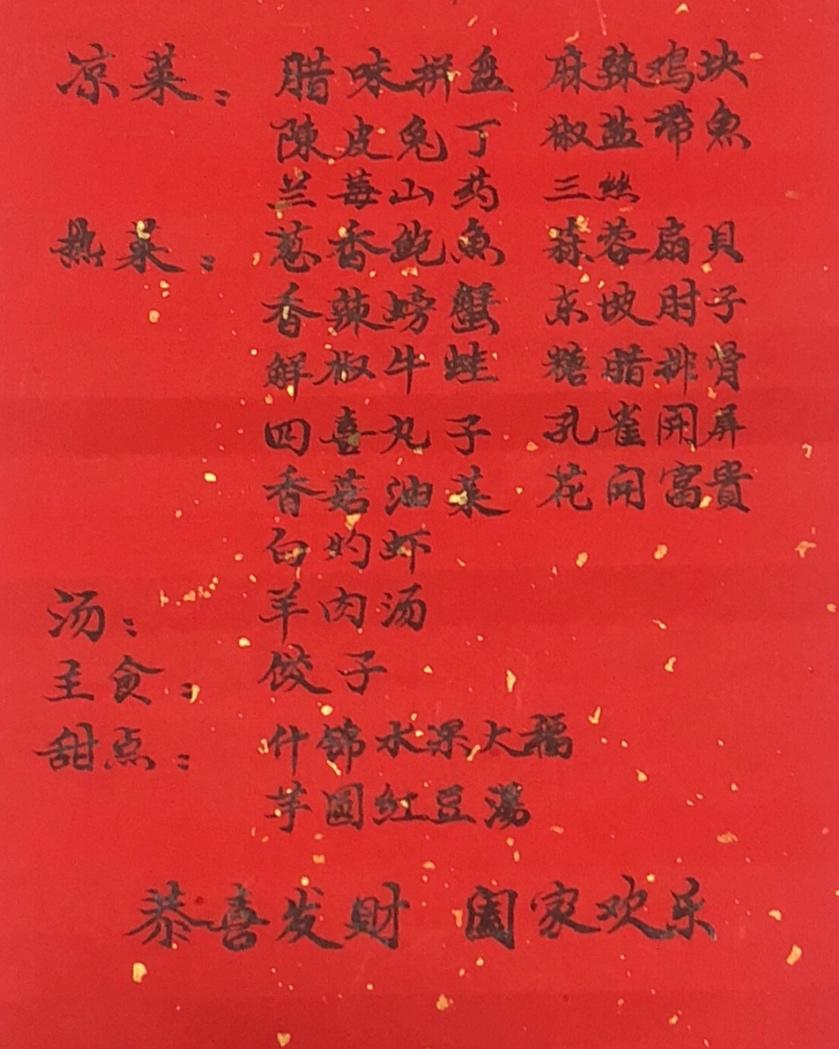 凉菜： 腊味拼盆 麻辣鸡块
陳皮兔丁 椒盐带魚
兰莓山药 三丝
热菜： 葱香鲍魚 蒜蓉扇贝
香辣螃蟹 东坡肘子
鲜椒牛蛙 糖腊排骨
四喜丸子 孔雀開屏
香菇油菜 花開富貴
白灼虾
汤： 羊肉汤
主食： 饺子
甜点： 什锦水果大福
芋圆红豆湯
恭喜发财 阖家欢乐